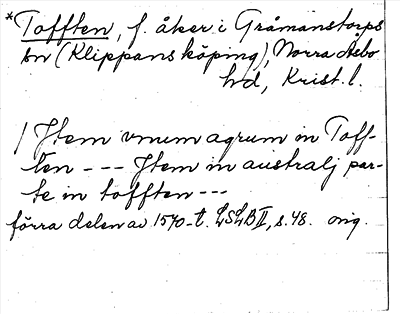 *Tofften, f. åker i Gråmanstorps
sn (Klippans köping), Norra Åsbo
hd, Krist. l.
/ Jtem vnum agrum in Toff-
ten - - - Jtem in australj par-
te in tofften - - -
förra delen av 1570-t. LSLB II, s. 48. orig.